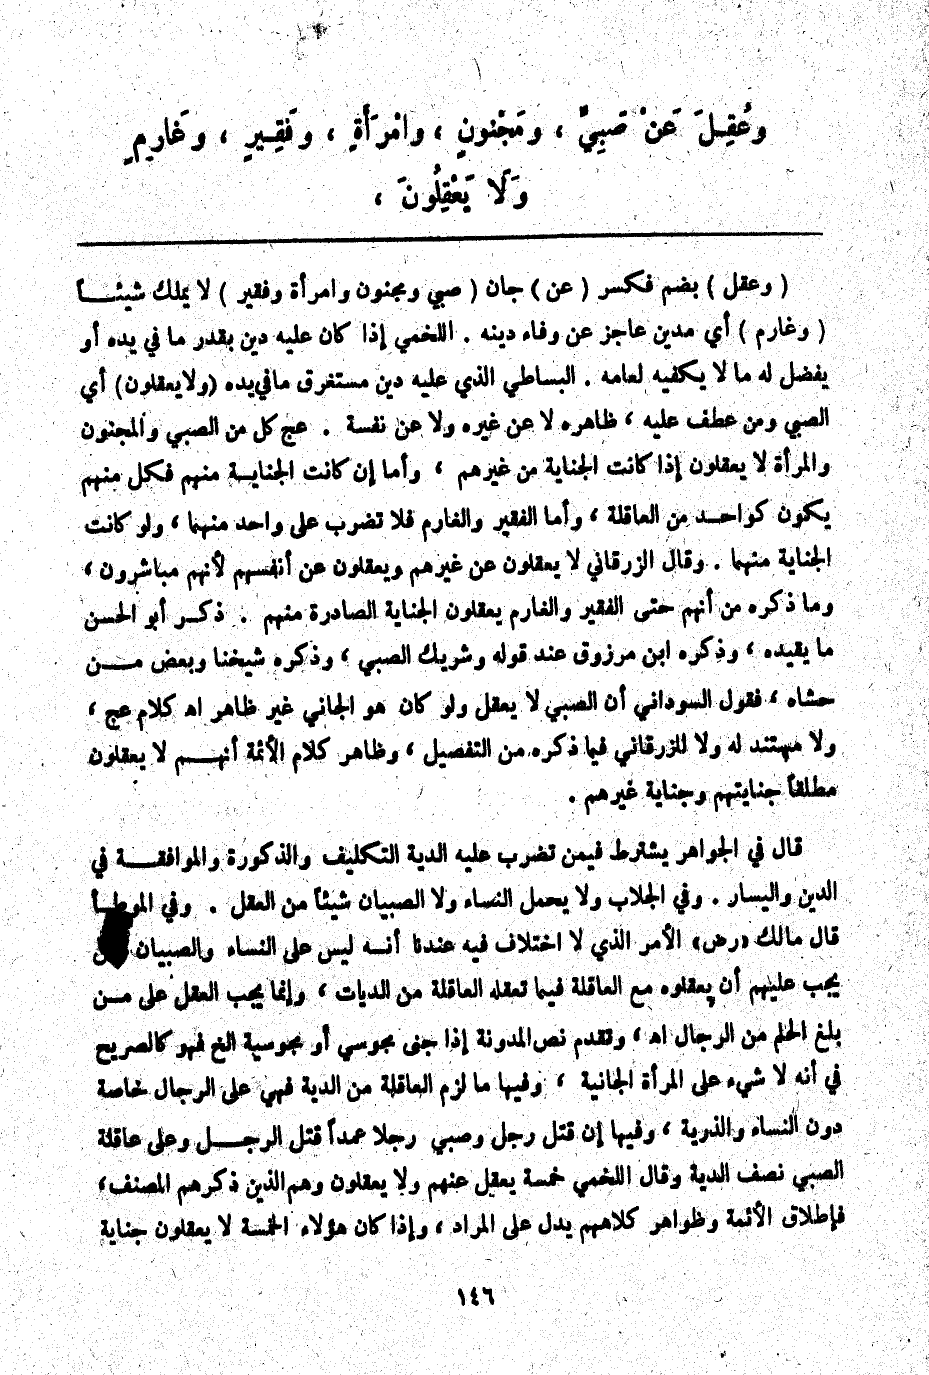 وَعُقِلَ عَنْ صَبِيٍّ ، وَمَجْنونٍ ، وامْرَأَةٍ ، وَفَقِيرٍ ، وَغارِمٍ
وَلَا يَعْقِلُونَ ،
( وعقل ) بضم فكسر ( عن ) جان ( صبي ومجنون وامرأة وفقير ) لا يملك شيئـــاً
( وغارم ) أي مدين عاجز عن وفاء دينه . اللخمي إذا كان عليه دين بقدر ما في يده أو
يفضل له ما لا يكفيه لعامه . البساطي الذي عليه دين مستغرق ما في يده (ولا يعقلون) أي
الصبي ومن عطف عليه ، ظاهره لا عن غيره ولا عن نفسة . عج كل من الصبي والمجنون
والمرأة لا يعقلون إذا كانت الجناية من غيرهم ، وأما إن كانت الجنايـة منهم فكل منهم
يكون كواحـد من العاقلة ، وأما الفقير والغارم فلا تضرب على واحد منهما ، ولو كانت
الجناية منهما . وقال الزرقاني لا يعقلون عن غيرهم ويعقلون عن أنفسهم لأنهم مباشرون ،
وما ذكره من أنهم حتى الفقير والغارم يعقلون الجناية الصادرة منهم . ذكـر أبو الحسن
ما يقيده ، وذكره ابن مرزوق عند قوله وشريك الصبي ، وذكره شيخنا وبعض مـــن
حشاه ، فقول السوداني أن الصبي لا يعقل ولو كان هو الجاني غير ظاهر اه كلام عج ،
ولا مستند له ولا للزرقاني فيما ذكره من التفصيل ، وظاهر كلام الأئمة أنهـــم لا يعقلون
مطلقاً جنايتهم وجناية غيرهم .
قال في الجواهر يشترط فيمن تضرب عليه الدية التكليف والذكورة والموافقـــة في
الدين واليسار . وفي الجلاب ولا يحمل النساء ولا الصبيان شيئاً من العقل . وفي الموطـأ
قال مالك «رض» الأمر الذي لا اختلاف فيه عندنا أنـه ليس على النساء والصبيان
يجب عليهم أن يعقلوه مع العاقلة فيما تعقله العاقلة من الديات ، وإنما يجب العقل على مـن
بلغ الحلم من الرجال اه ، وتقدم نص المدونة إذا جنى مجوسي أو مجوسية الخ فهو كالصريح
في أنه لا شيء على المرأة الجانية ، وفيها ما لزم العاقلة من الدية فهي على الرجال خاصة
دون النساء والذرية ، وفيها إن قتل رجل وصبي رجلا عمداً قتل الرجـــل وعلى عاقلة
الصبي نصف الدية وقال اللخمي خمسة يعقل عنهم ولا يعقلون وهم الذين ذكرهم المصنف ،
فإطلاق الأئمة وظواهر كلامهم يدل على المراد ، وإذا كان هؤلاء الخمسة لا يعقلون جناية
١٤٦